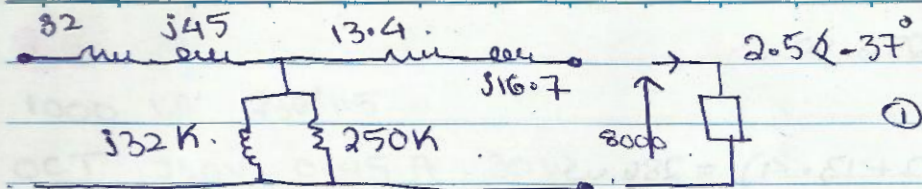 32 j45 13.4
j16.7
2.5∠-37°
j32K. 250K
8000
①